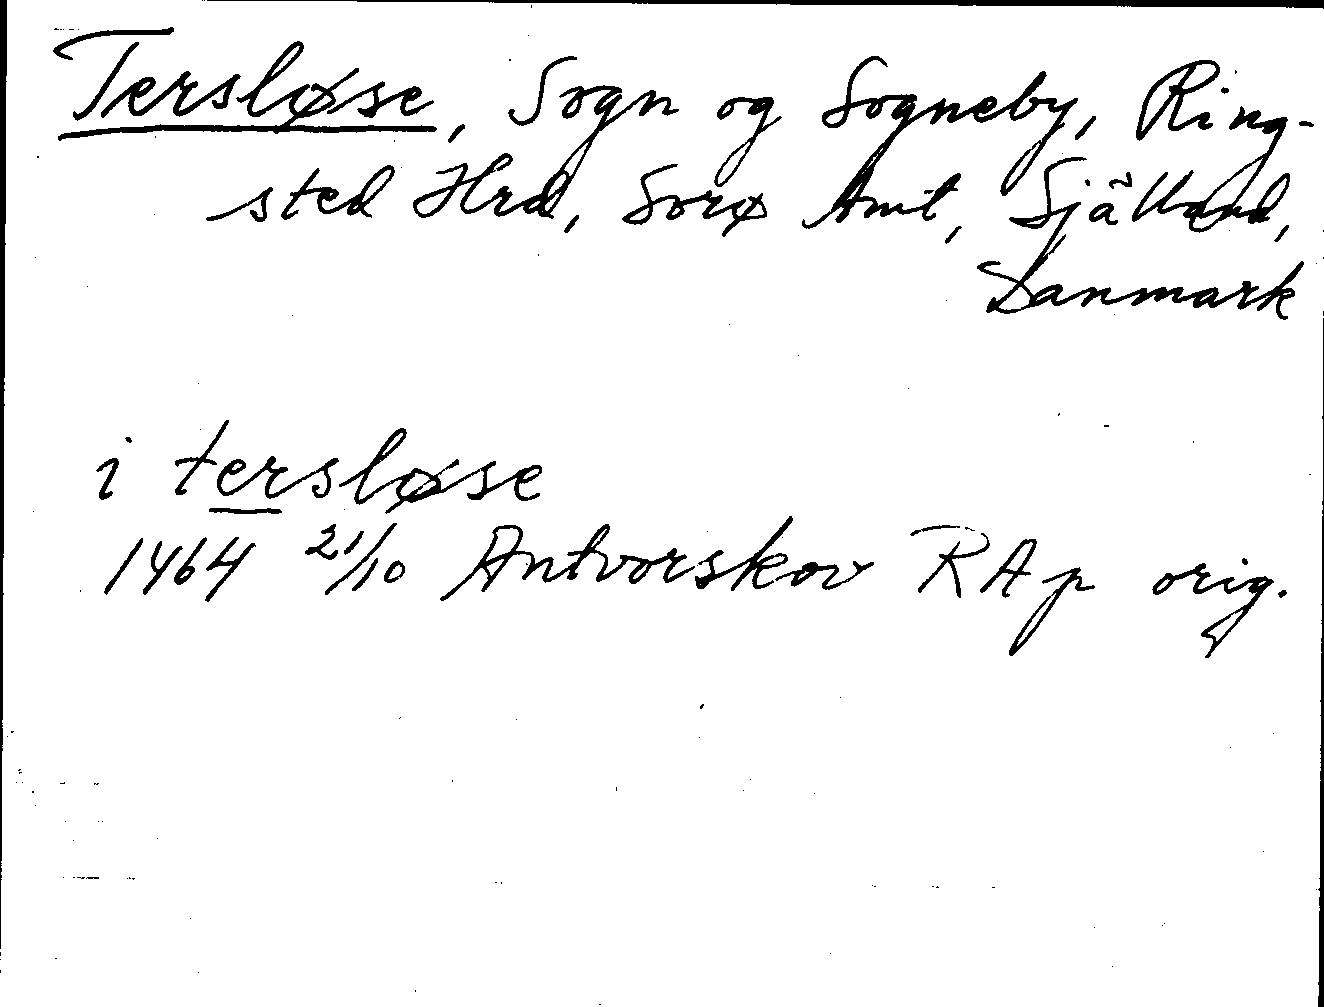 Tersløse, Sogn og Sogneby, Ring-
sted Hrd, Sorø Amt, Själland,
Danmark
i tersløse
1464 21/10 Antvorskov RAp orig.